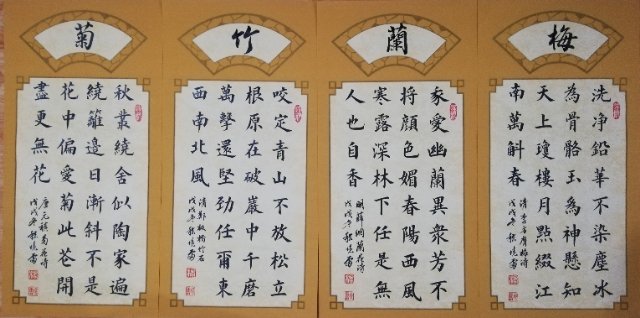 梅
洗净鉛華不染塵冰
為骨骼玉為神懸知
天上瓊樓月點綴江
南萬斛春
清李方膺梅詩
戊戌冬
蘭
我愛幽蘭異衆芳不
將顏色媚春陽西風
寒露深林下任是無
人也自香
明薛網蘭花詩
戊戌冬
竹
咬定青山不放松立
根原在破巖中千磨
萬擊還堅勁任爾東
西南北風
清鄭板橋竹石
戊戌冬
菊
秋叢繞舍似陶家遍
繞籬邊日漸斜不是
花中偏愛菊此花開
盡更無花
唐元稹菊花詩
戊戌冬